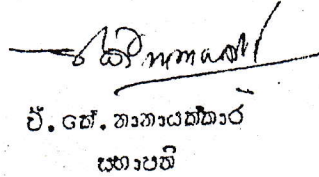 ඒ. කේ. නානායක්කාර
සභාපති